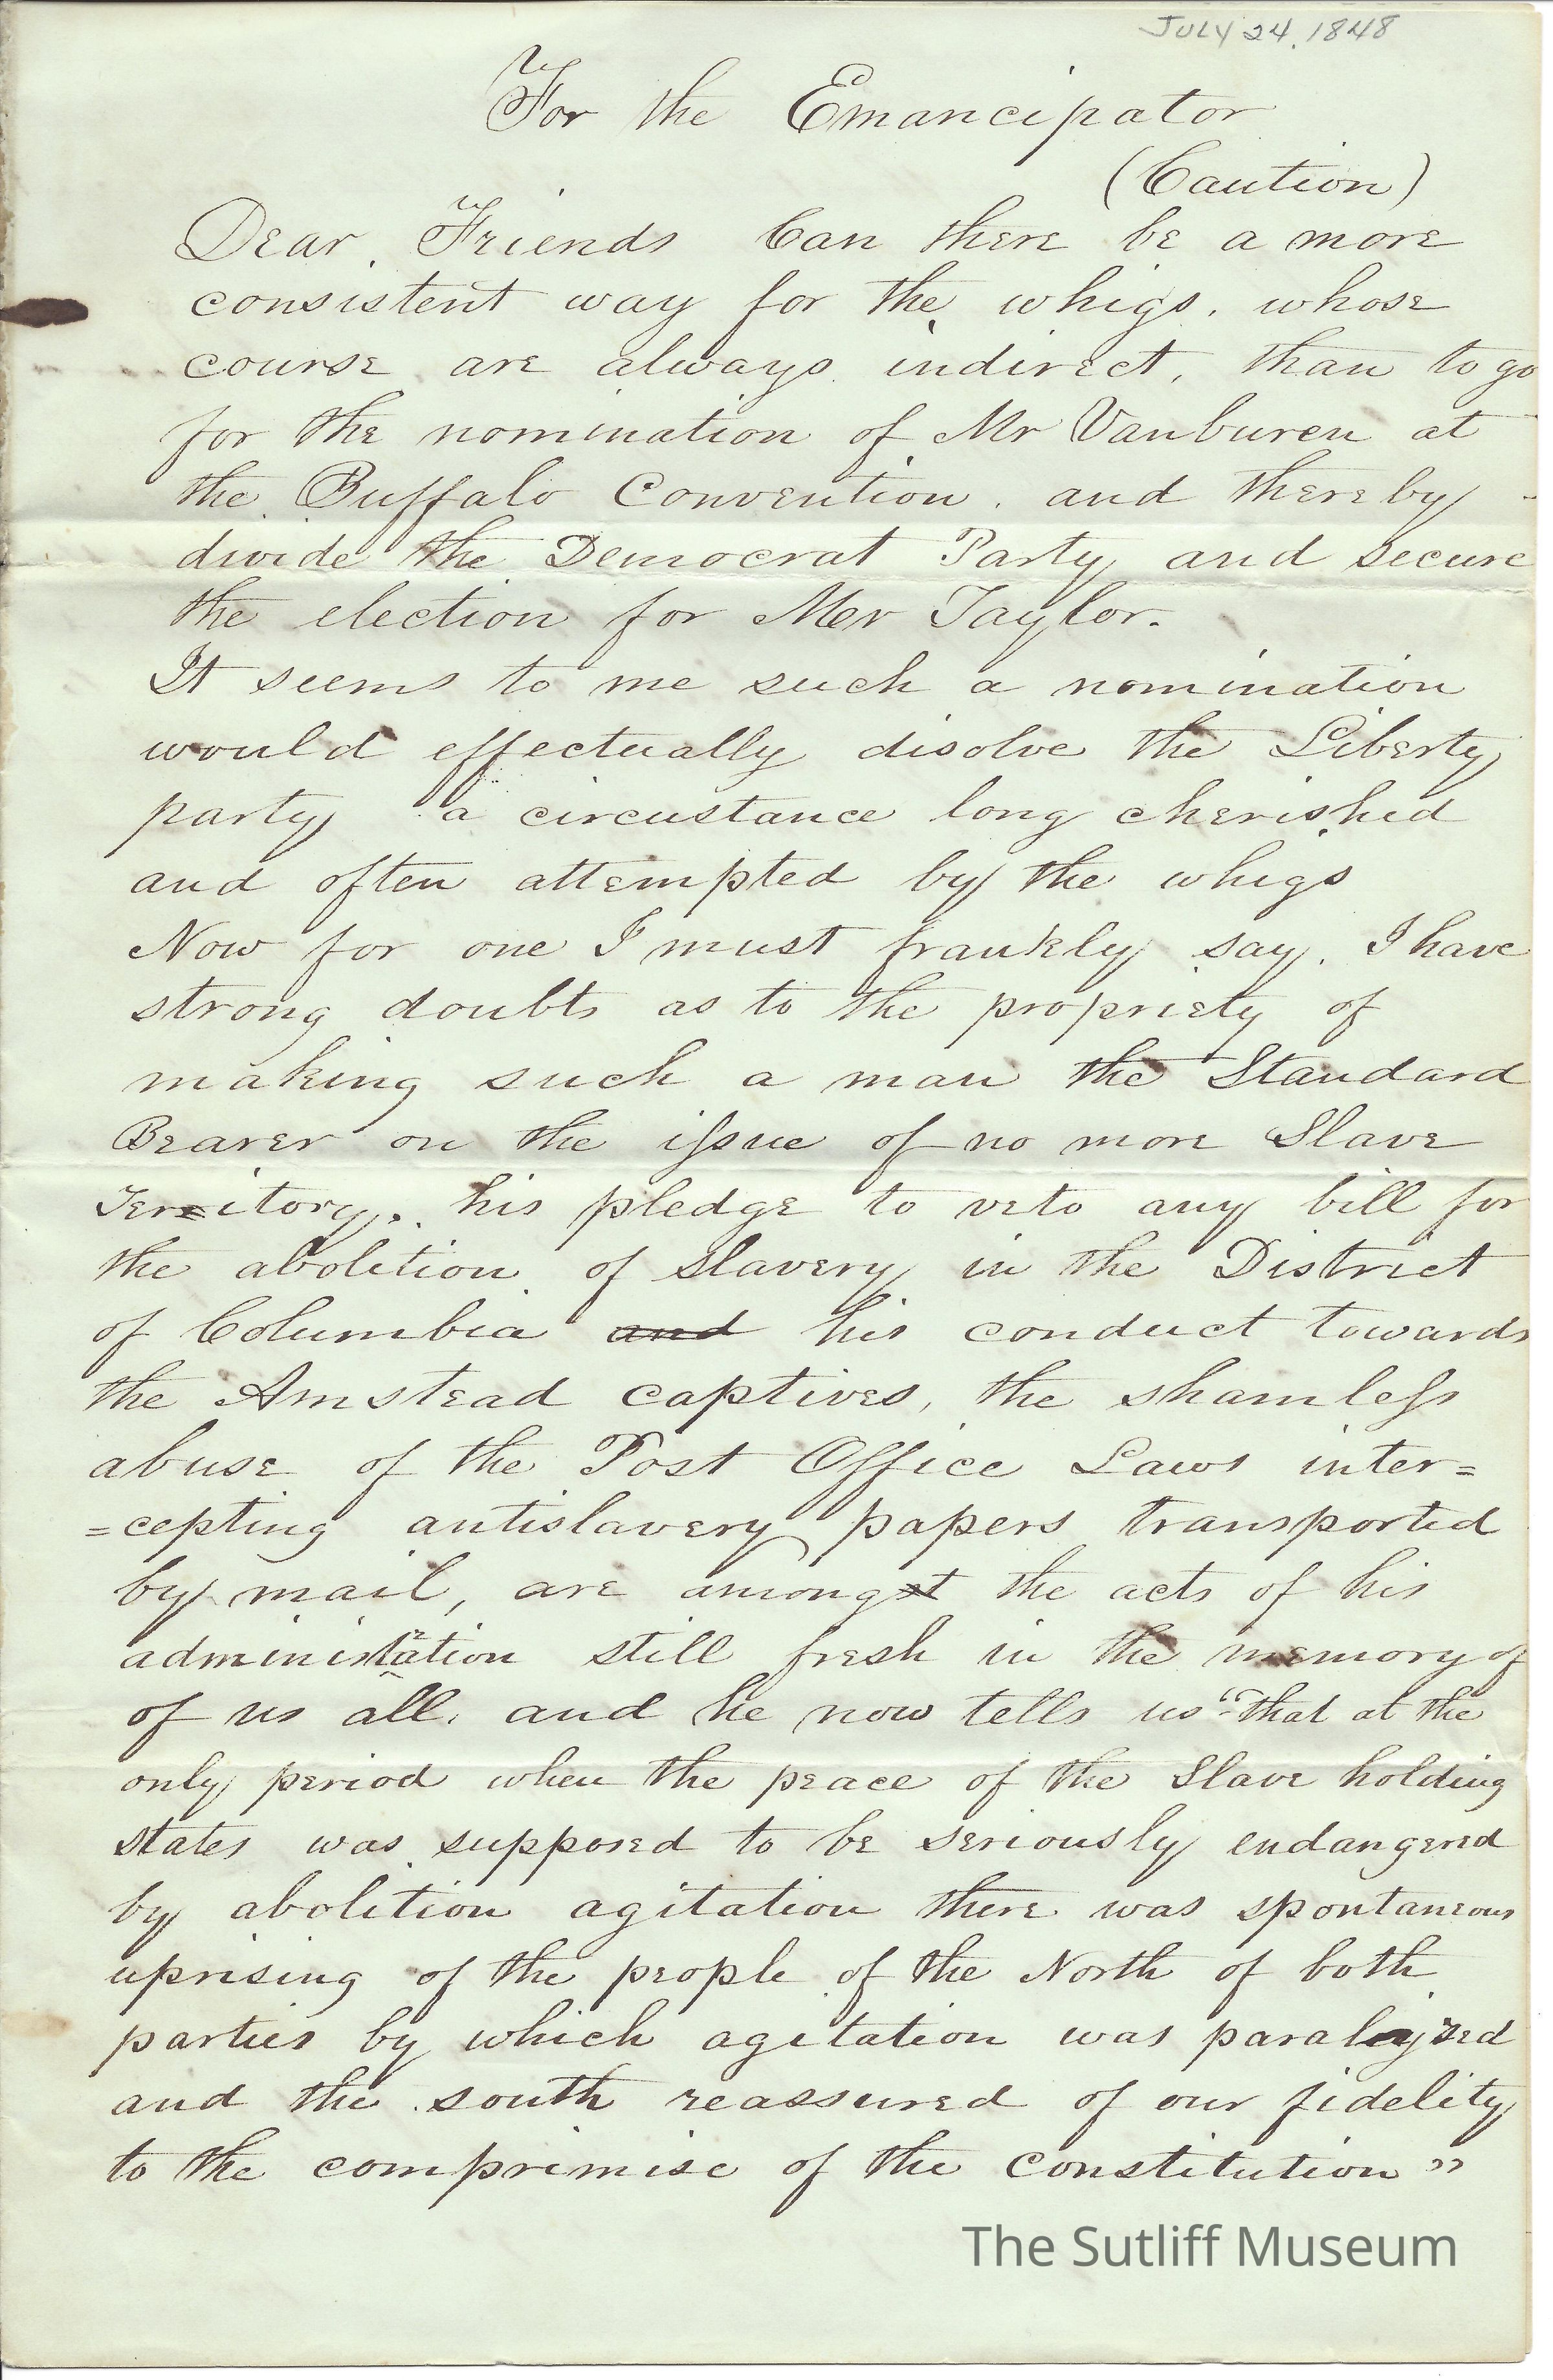 JULY 24, 1848
For the Emancipator
(Caution)
Dear Friends Can there be a more
consistent way for the whigs, whose
course are always indirect, than to go
for the nomination of Mr Vanburen at
the Buffalo Convention, and thereby
divide the Democrat Party and secure
the election for Mer Taylor.
It seems to me such a nomination
would effectually disolve the Liberty
party a circustance long cherished
and often attempted by the whigs
Now for one I must frankly say, I have
strong doubts as to the propriety of
making such a man the Standard
Bearer on the issue of no more Slave
Territory, his pledge to veto any bill for
the abolition of slavery in the District
of Columbia and his conduct towards
the Amstead captives, the shamless
abuse of the Post Office Laws inter=
=cepting antislavery papers transported
by mail, are amongst the acts of his
administration still fresh in the memory of
of us all, and he now tells us "that at the
only period when the peace of the Slave holding
states was supposed to be seriously endangered
by abolition agitation there was spontaneous
uprising of the people of the North of both
parties by which agitation was paralyzed
and the south reassured of our fidelity
to the comprimise of the constitution"
The Sutliff Museum